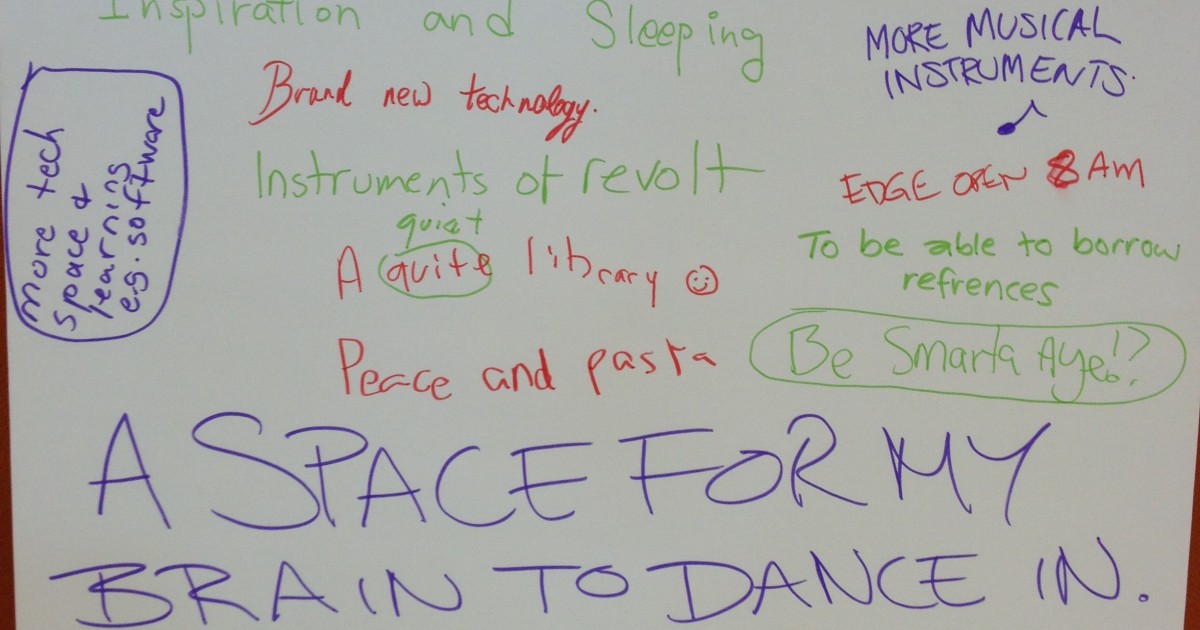 Inspiration and Sleeping
MORE MUSICAL
INSTRUMENTS.
Brand new technology.
more tech
space &
learning
e.g. software
Instruments of revolt
EDGE OPEN 8 AM
quiet
A quite library
To be able to borrow
refrences
Peace and pasta
Be Smarta Aye!?
A SPACE FOR MY
BRAIN TO DANCE IN.